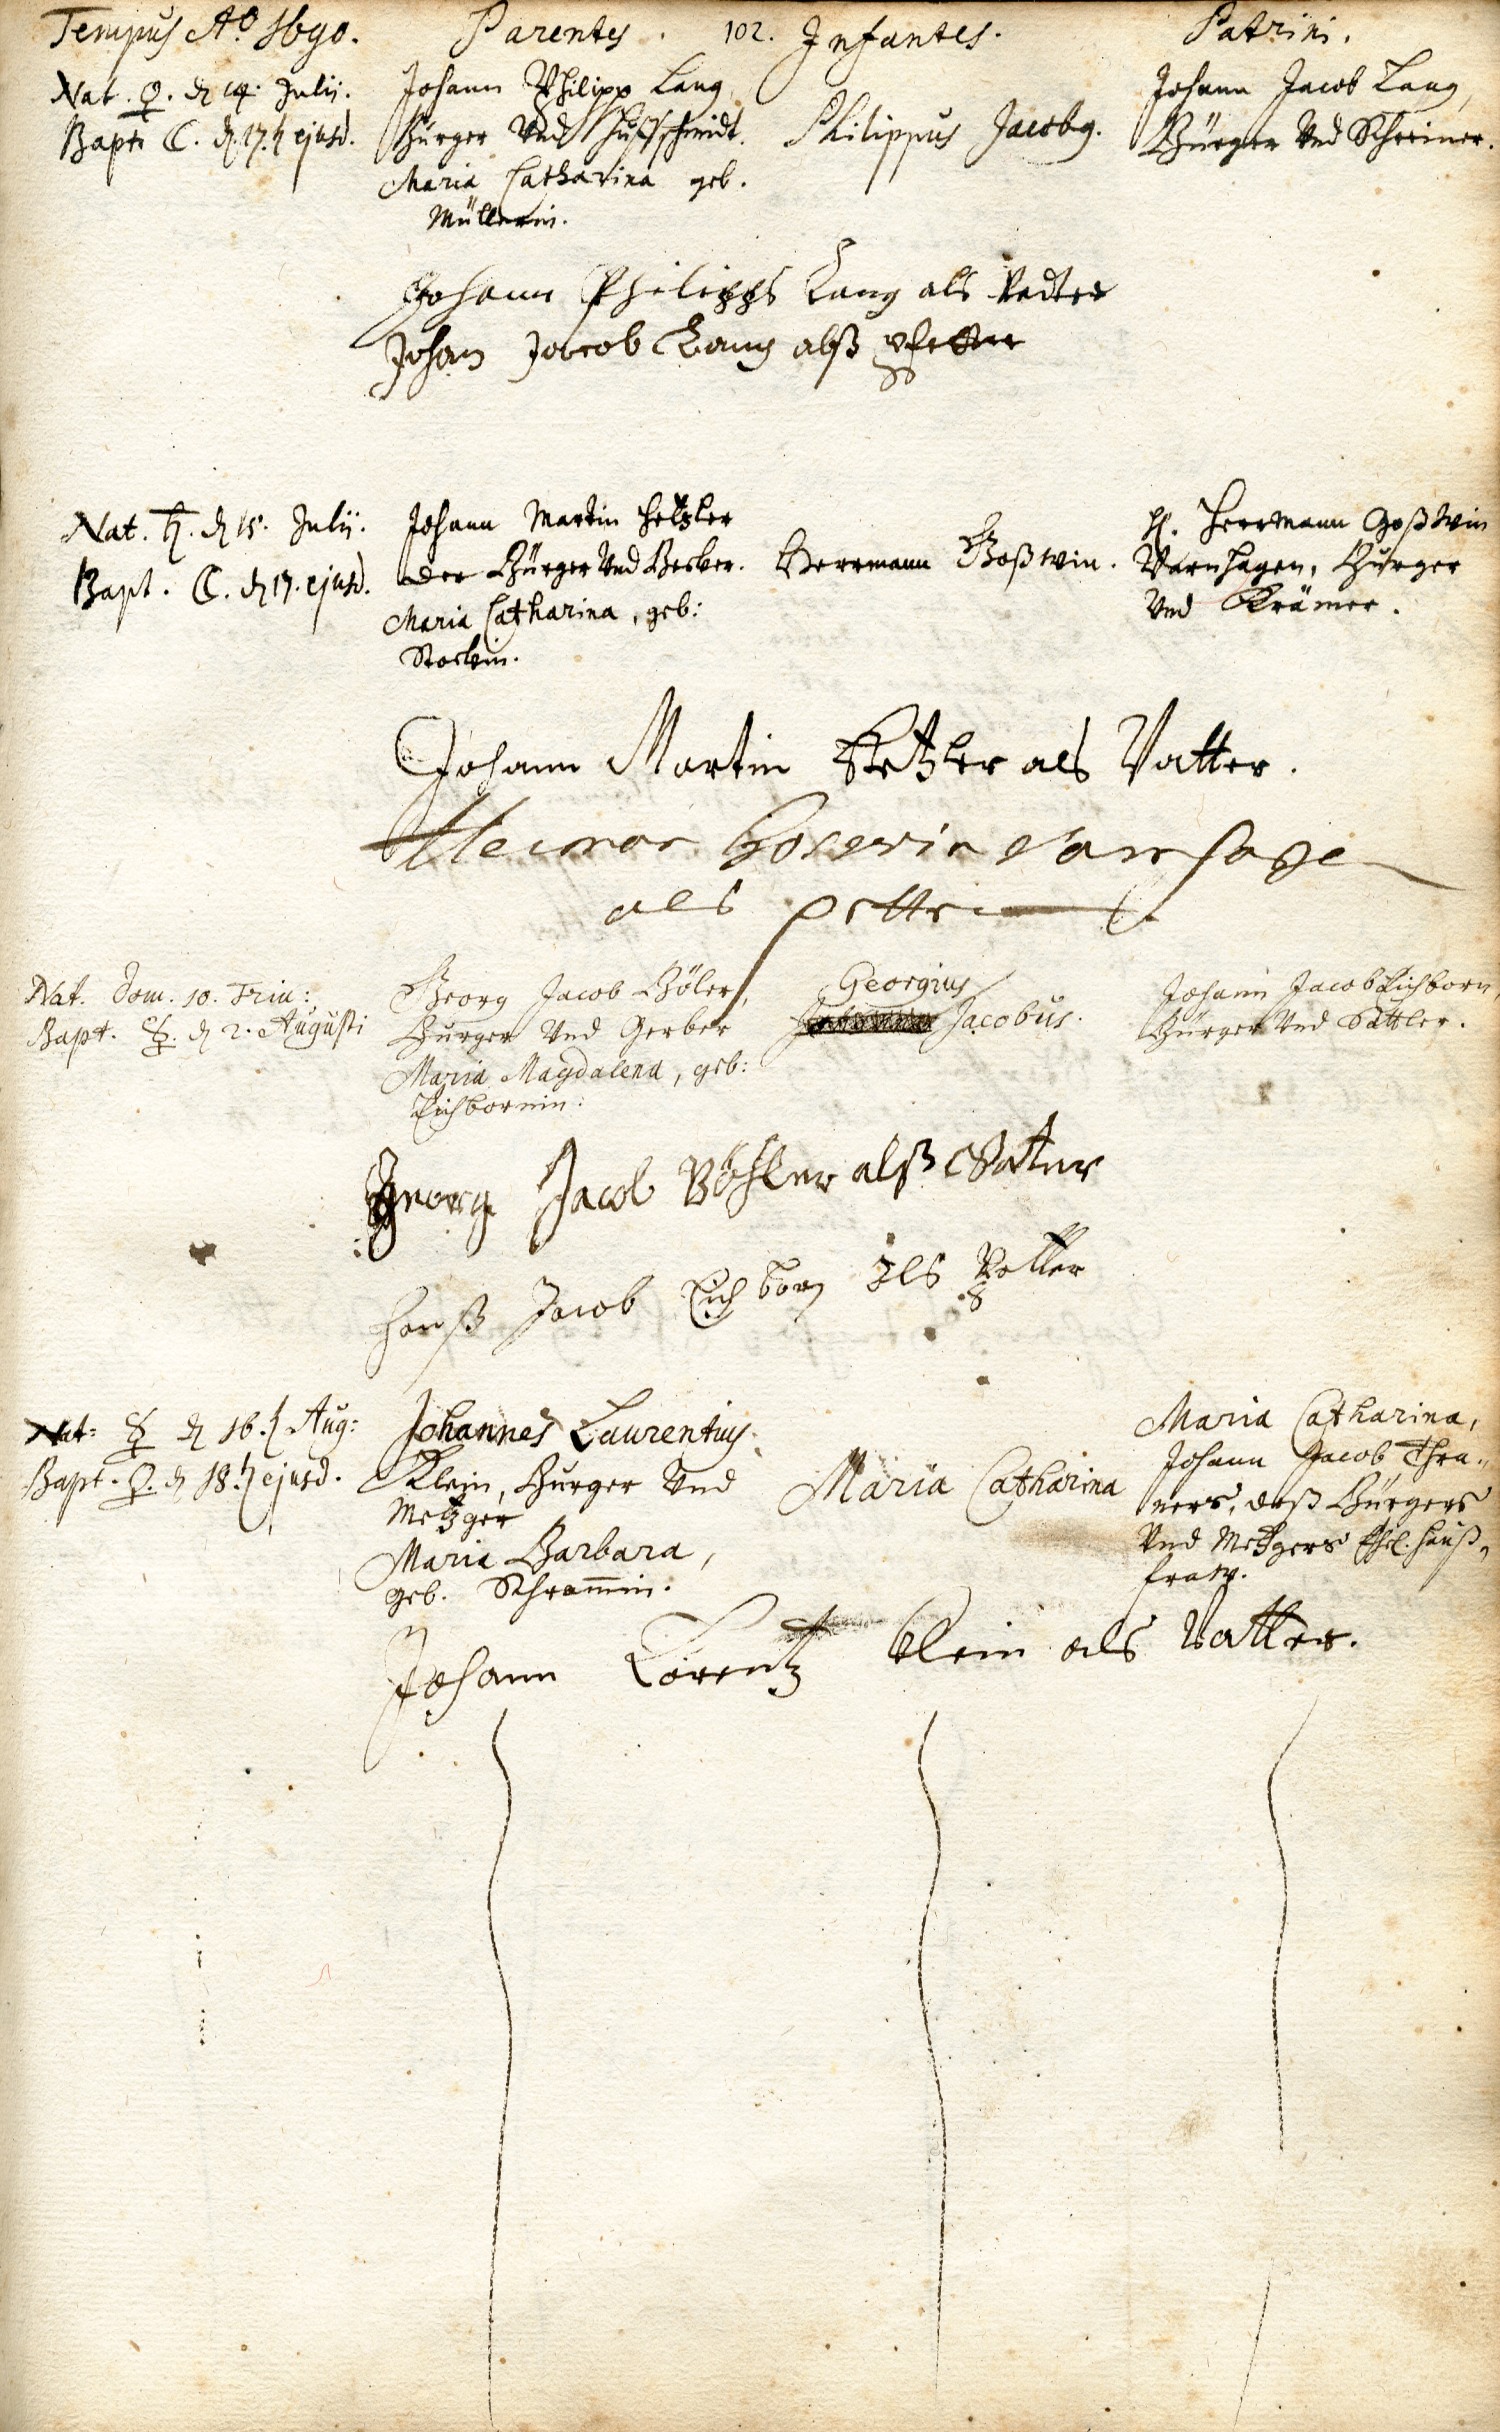 Tempus Aº 1690. Parentes. 102. Infantes. Patrini.
Nat. ♀. d. 14. Julij.
Bapt. ☾. d. 17. ejusd.
Johann Philipp Lang,
Bürger Vnd Huffschmidt.
Maria Catharina geb.
Müllerin.
Philippus Jacobus.
Johann Jacob Lang,
Bürger Vnd Schreiner.
Johann Philipps Lang als Vadter
Johan Jocob Lang alß Petter
Nat. ♄. d. 15. Julij.
Bapt. ☾. d. 17. ejusd.
Johann Martin Hetzler
der Bürger Vnd Becker.
Maria Catharina, geb:
Stockin.
Herrmann Goßwin.
H. Herrmann Goßwin
Varnhagen, Burger
Vnd Krämer.
Johann Martin Hetzler als Vatter.
Goswin Varnhagen
als petter
Nat. Dom. 10. Trin:
Bapt. ☿. d. 2. Augusti
Georg Jacob Böler,
Burger Vnd Gerber
Maria Magdalena, geb:
Eichbornin:
Georgius
Jacobus.
Johann Jacob Eichborn,
Bürger Vnd Sattler.
Georg Jacob Böhler alß Vatter
Hanß Jacob Eichborn als Petter
Nat: ☿ d. 16. Aug:
Bapt. ♀. d. 18. ejusd.
Johannes Laurentius
Klein, Burger Vnd
Metzger
Maria Barbara,
geb. Schram̄in.
Maria Catharina
Maria Catharina,
Johann Jacob Thra-
ners, deß Bürgers
Vnd Metzgers Ehel. Hauß-
fraw.
Johann Lorentz Klein als Vatter.